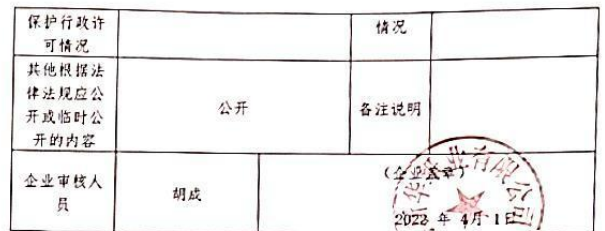 保护行政许
可情况
情况
其他根据法
律法规应公
开或临时公
开的内容
公开
备注说明
企业审核人
员
胡成
(企业盖章)
2022 年 4月 1日
业有限公司